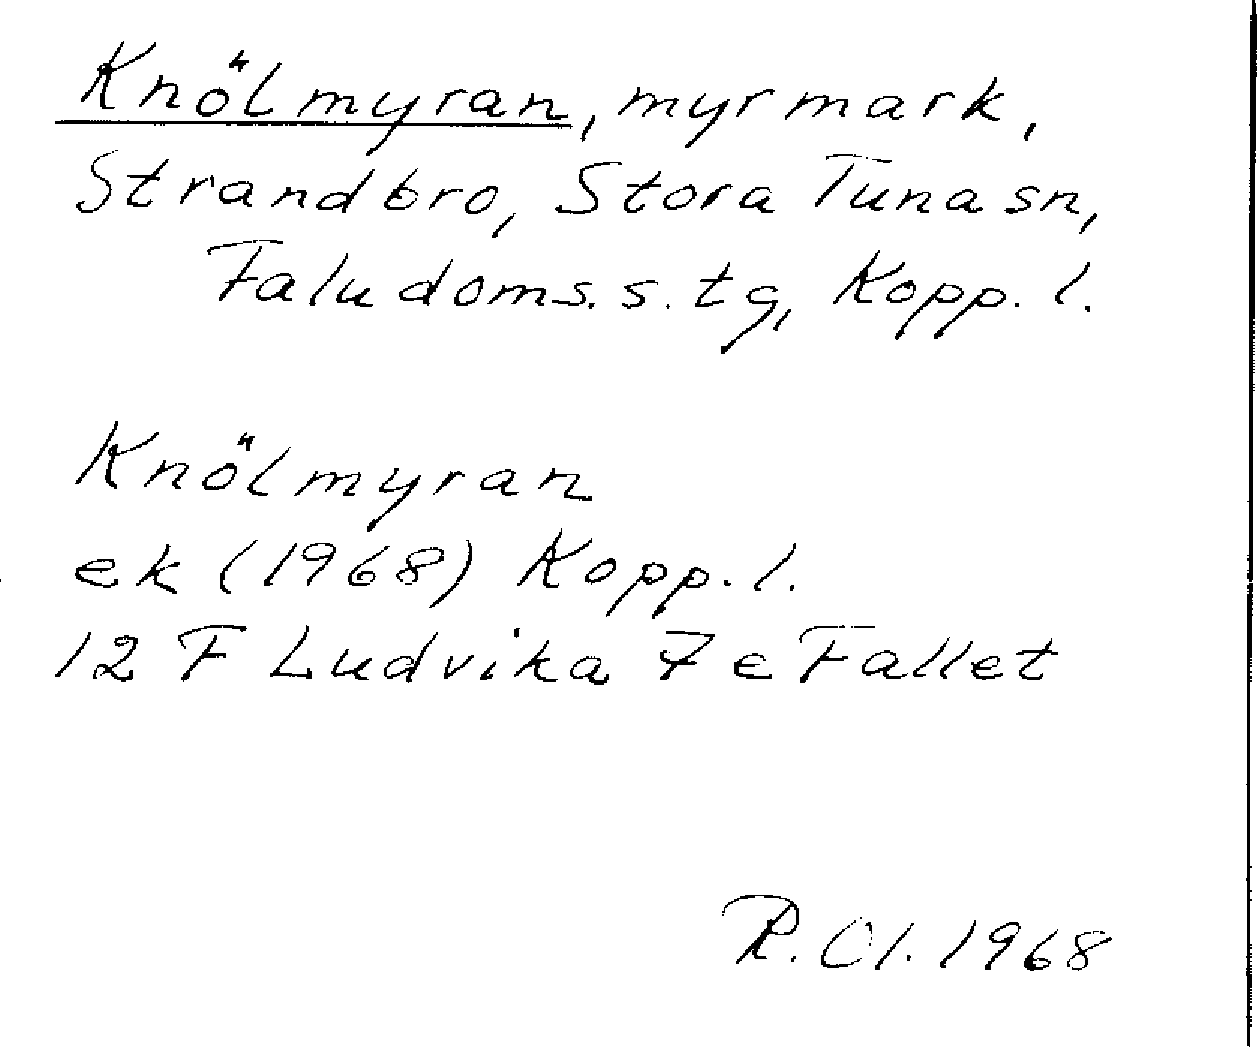 Knölmyran, myrmark,
Strandbro, Stora Tuna sn,
Falu doms. s. tg, Kopp. l.
Knölmyran
ek (1968) Kopp. l.
12 F Ludvika 7 e Fallet
R. Ol. 1968